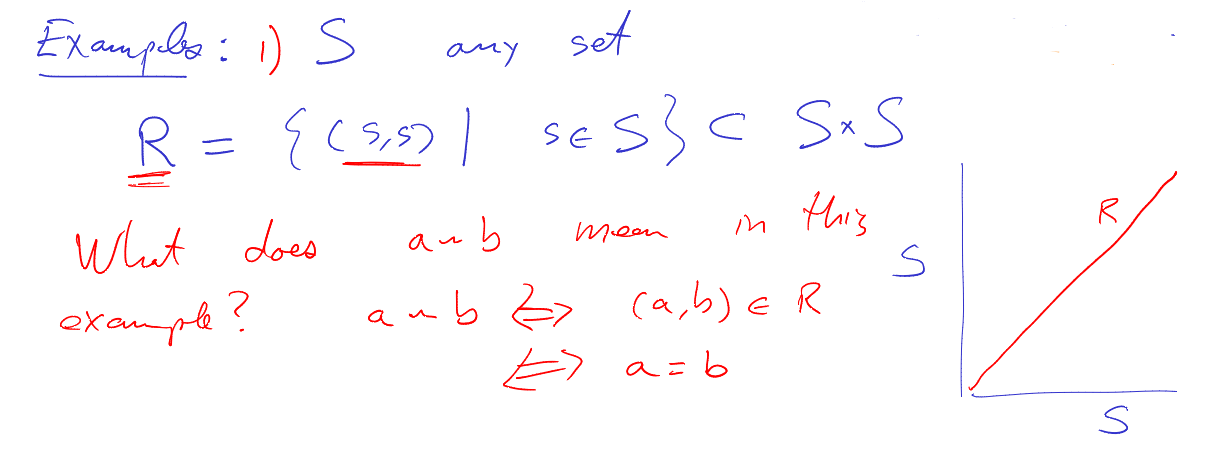 Examples: 1) S any set
R = {(s,s) | s ∈ S} ⊂ S × S
What does a ~ b mean in this
example? a ~ b ⟺ (a,b) ∈ R
⟺ a = b
R
S
S